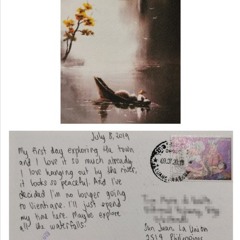 July 8, 2019
My first day exploring the town
and I love it so much already.
I love hanging out by the river,
it looks so peaceful. And I've
decided I'm no longer going
to Vientiane. I'll just spend
my time here. Maybe explore
all the waterfalls!
San Juan La Union
2514 Philippines